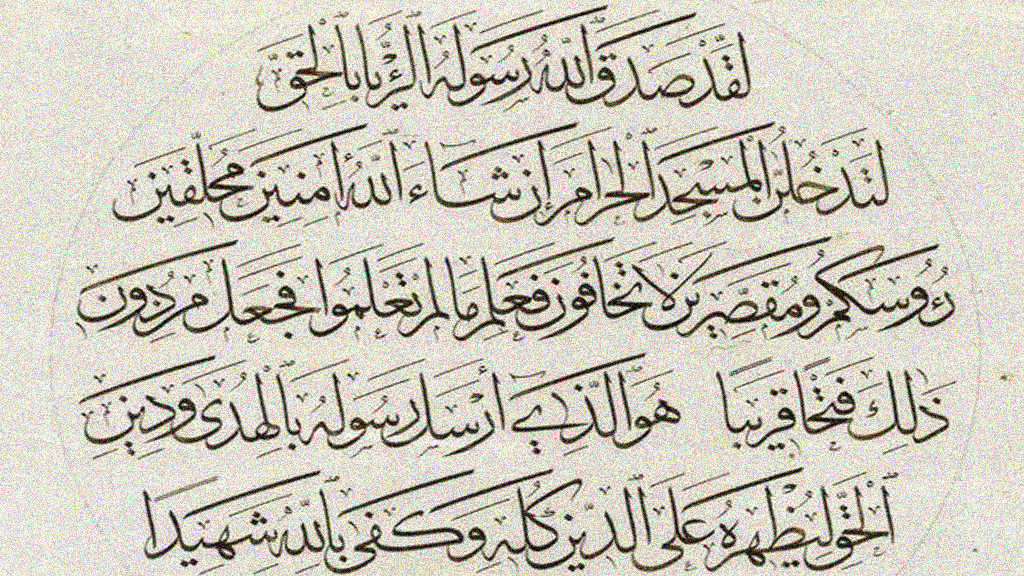 لَقَدْ صَدَقَ ٱللَّهُ رَسُولَهُ ٱلرُّءْيَا بِٱلْحَقِّ
لَتَدْخُلُنَّ ٱلْمَسْجِدَ ٱلْحَرَامَ إِن شَاءَ ٱللَّهُ آمِنِينَ مُحَلِّقِينَ
رُءُوسَكُمْ وَمُقَصِّرِينَ لَا تَخَافُونَ فَعَلِمَ مَا لَمْ تَعْلَمُوا فَجَعَلَ مِن دُونِ
ذَٰلِكَ فَتْحًا قَرِيبًا هُوَ ٱلَّذِي أَرْسَلَ رَسُولَهُ بِٱلْهُدَىٰ وَدِينِ
ٱلْحَقِّ لِيُظْهِرَهُ عَلَى ٱلدِّينِ كُلِّهِ وَكَفَىٰ بِٱللَّهِ شَهِيدًا